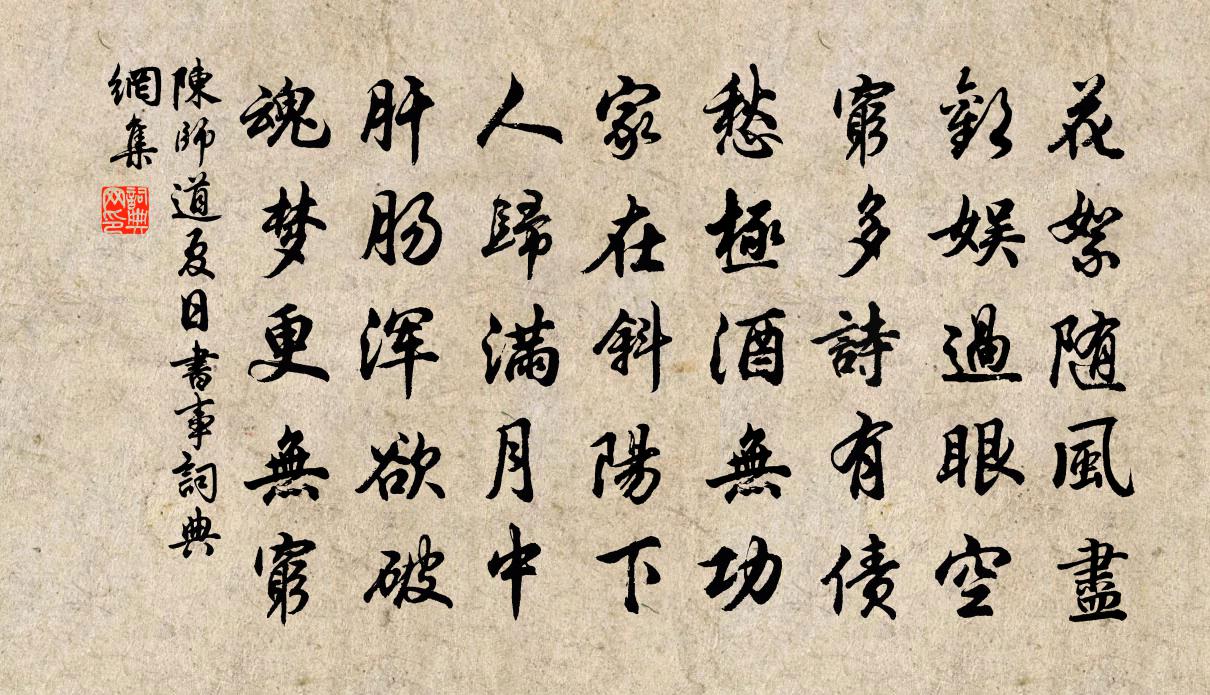 花絮随風盡
歡娱過眼空
窮多詩有债
愁極酒無功
家在斜陽下
人歸滿月中
肝肠浑欲破
魂梦更無窮
陳師道夏日書事詞典
網集
詞典
网印